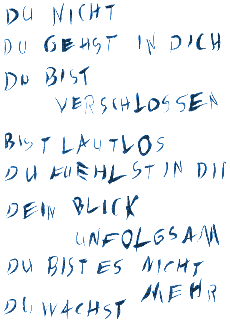 DU NICHT
DU GEHST IN DICH
DU BIST
VERSCHLOSSEN
BIST LAUTLOS
DU FUEHLST IN DIR
DEIN BLICK
UNFOLGSAM
DU BIST ES NICHT
MEHR
DU WACHST